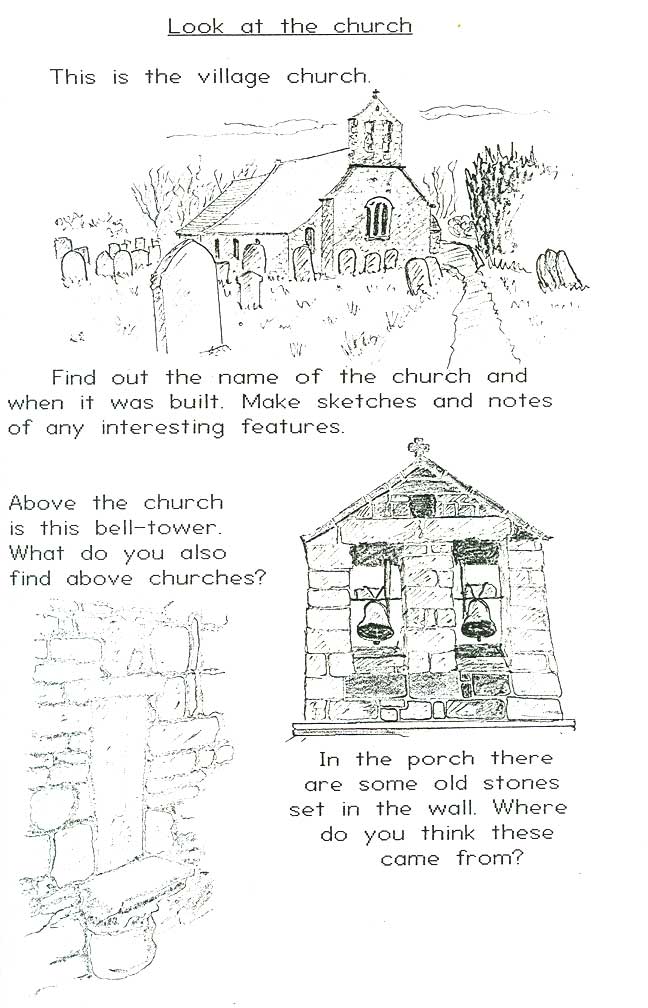 Look at the church
This is the village church.
Find out the name of the church and
when it was built. Make sketches and notes
of any interesting features.
Above the church
is this bell-tower.
What do you also
find above churches?
In the porch there
are some old stones
set in the wall. Where
do you think these
came from?